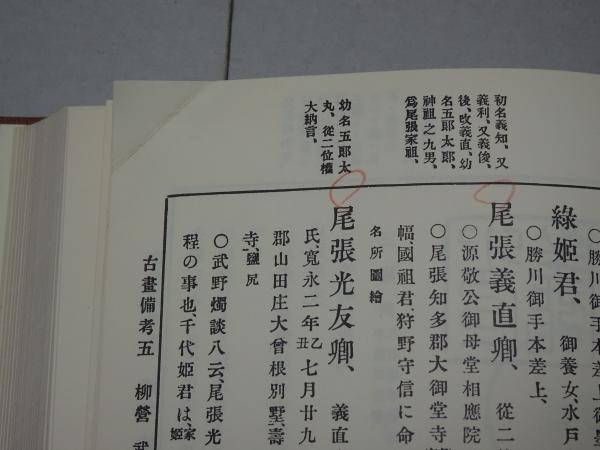 初名義知、又
義利、又義俊、
後、改義直、幼
名五郎太郎、
神祖之九男、
爲尾張家祖、
幼名五郎太
丸、從二位權
大納言、
〇勝川御手本差上、御
綠姬君、 御養女、水戶
〇勝川御手本差上、
尾張義直卿、 從二
〇源敬公御母堂相應院
〇尾張知多郡大御堂寺
幅、國祖君、狩野守信に命
名所圖繪
尾張光友卿、 義直
氏、寬永二年乙丑七月廿九
郡山田庄大曾根別墅、壽
寺、鹽尻
〇武野燭談八云、尾張光
程の事也、千代姬君は、家姬
古畫備考五 柳營 武